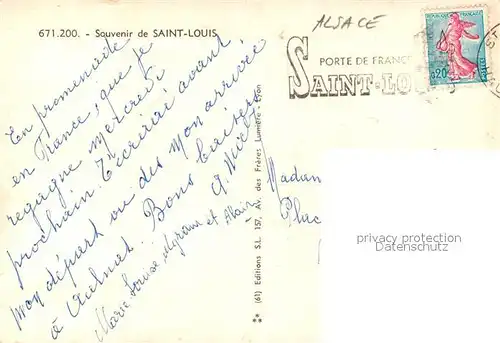 671.200. - Souvenir de SAINT-LOUIS
ALSACE
PORTE DE FRANCE
SAINT-LO
REPUBLIQUE FRANÇAISE
0,20
POSTES
En promenade
en France, que je
regagne mercredi
prochain. T'écrirai avant
mon départ ou dès mon arrivée
à Aulnat. Bons baisers
Marie Louise Myriam et Alain
(61) Editions S.L. 157, Av. des Frères Lumière - Lyon
Madam
Plac
privacy protection
AnsichtskartenCenter.de